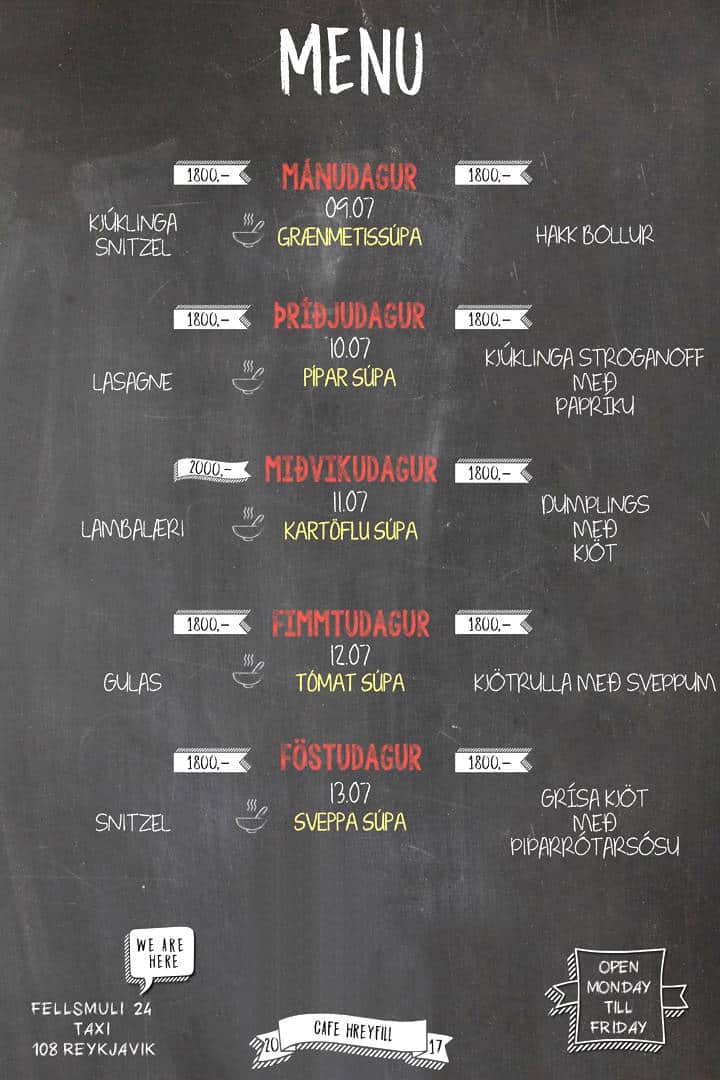 MENU
1800.-
MÁNUDAGUR
1800.-
09.07
KJÚKLINGA
SNITZEL
GRÆNMETISSÚPA
HAKK BOLLUR
1800.-
ÞRÍÐJUDAGUR
1800.-
10.07
LASAGNE
PÍPAR SÚPA
KJÚKLINGA STROGANOFF
MEÐ
PAPRÍKU
2000.-
MIÐVIKUDAGUR
1800.-
11.07
LAMBALÆRI
KARTÖFLU SÚPA
DUMPLINGS
MEÐ
KJÖT
1800.-
FIMMTUDAGUR
1800.-
12.07
GULAS
TÓMAT SÚPA
KJÖTRULLA MEÐ SVEPPUM
1800.-
FÖSTUDAGUR
1800.-
13.07
SNITZEL
SVEPPA SÚPA
GRÍSA KJÖT
MEÐ
PIPARRÓTARSÓSU
WE ARE
HERE
FELLSMULI 24
TAXI
108 REYKJAVIK
20 CAFE HREYFILL 17
OPEN
MONDAY
TILL
FRIDAY